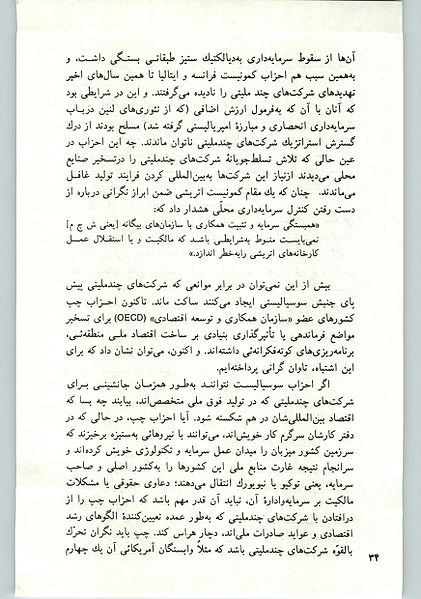 آن‌ها از سقوط سرمایه‌داری به‌دیالکتیك ستیز طبقاتـی بستـگی داشـت، و
به‌همین سبب هم احزاب کمونیست فرانسه و ایتالیا تا همین سال‌های اخیر
تهدیدهای شرکت‌های چند ملیتی را نادیده می‌گرفتند. و این در شرایطی بود
که آنان با آن که به‌فرمول ارزش اضافی (که از تئوری‌های لنین دربـاب
سرمایه‌داری انحصاری و مبارزهٔ امپریالیستی گرفته شد) مسلح بودند از درك
گسترش استراتژیك شرکت‌های چندملیتی ناتوان ماندند. چه این احزاب در
عین حالی که تلاش تسلط‌جویانهٔ شرکت‌های چندملیتی را درتسخیر صنایع
محلی می‌دیدند ازنیاز این شرکت‌ها به‌بین‌المللی کردن فرایند تولید غافـل
می‌ماندند. چنان که یك مقام کمونیست اتریشی ضمن ابراز نگرانی درباره از
دست رفتن کنترل سرمایه‌داری محلّی هشدار داد که:
«همبستگی سرمایه و تثبیت همکاری با سازمان‌های بیگانه [یعنی ش چ م]
نمی‌بایسـت منـوط به‌شرایطـی باشـد که مالکیـت و یا استقـلال عمـل
کارخانه‌های اتریشی رابه‌خطر اندازد.»
بیش از این نمی‌توان در برابر موانعی که شرکت‌های چندملیتی پیش
پای جنبش سوسیالیستی ایجاد می‌کنند ساکت ماند. تاکنون احـزاب چپ
کشورهای عضو «سازمان همکاری و توسعه اقتصادی» (OECD) برای تسخیر
مواضع فرماندهی یا تأثیرگذاری بنیادی بر ساخت اقتصاد ملـی منطقه‌ئـی،
برنامه‌ریزی‌های کوته‌فکرانه‌ئی داشته‌اند. و اکنون، می‌توان نشان داد که برای
این اشتباه، تاوان گرانی پرداخته‌ایم.
اگر احزاب سوسیالیسـت نتواننـد به‌طـور همزمـان جانشینـی بـرای
شرکت‌های چندملیتی که در تولید فوق ملی متخصص‌اند، بیابند چه بسا که
اقتصاد بین‌المللی‌شان در هم شکسته شود. آیا احزاب چپ، در حالی که در
دفتر کارشان سرگرم کار خویش‌اند، می‌توانند با نیروهائی به‌ستیزه برخیزند که
سرزمین کشور میزبان را میدان عمل سرمایه و تکنولوژی خویش کرده‌اند و
سرانجام نتیجه غارت منابع ملی این کشورها را به‌کشور اصلی و صاحب
سرمایه، یعنی توکیو یا نیویورك انتقال می‌دهند؛ دعاوی حقوقی یا مشکلات
مالکیت بر سرمایه‌وادارهٔ آن، نباید آن قدر مهم باشد که احزاب چپ را از
درافتادن با شرکت‌های چندملیتی که به‌طور عمده تعیین‌کنندهٔ الگوهای رشد
اقتصادی و عواید صادرات ملی‌اند، دچار هراس کند. چپ باید نگران تحرّك
بالقوّه شرکت‌های چندملیتی باشد که مثلاً وابستگان آمریکائی آن یك چهارم
۳۴